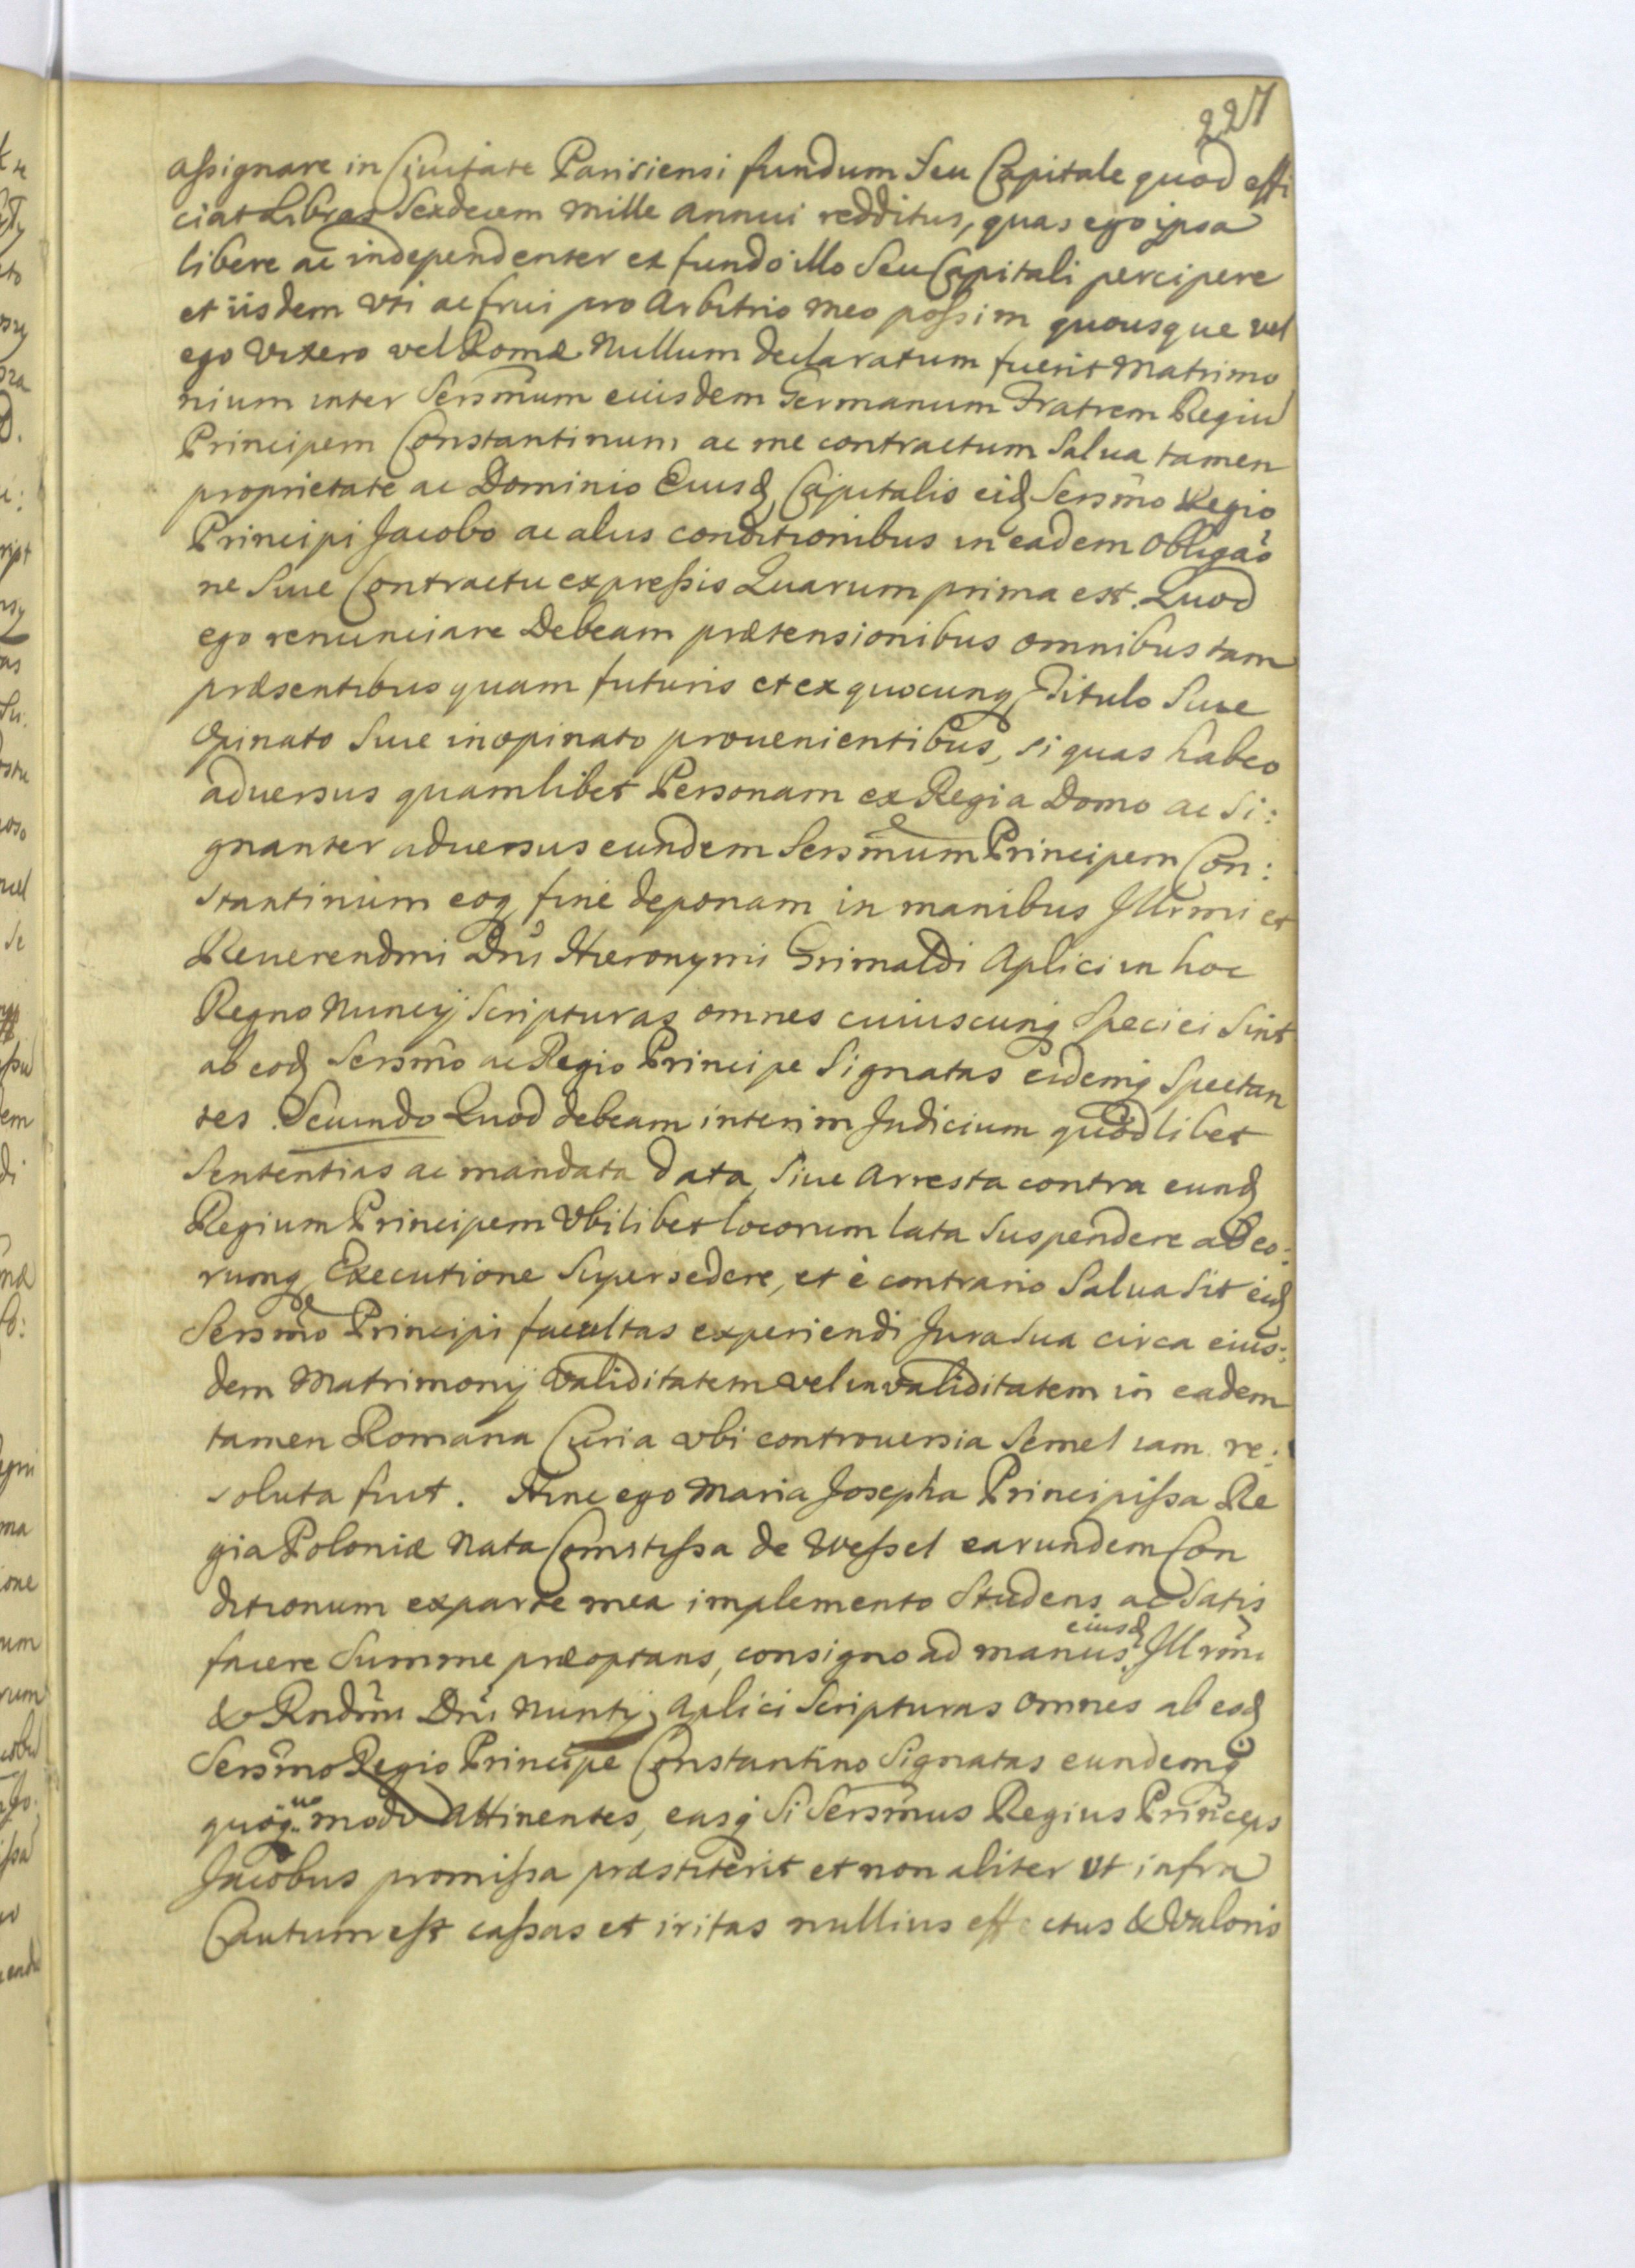 227
assignare in Ciuitate Parisiensi fundum Seu Capitale quod effi
ciat Libras Sexdecem mille annui redditus, quas ego ipsa
libere ac independenter ex fundo illo Seu Capitali percipere
et iisdem Vti ac frui pro Arbitrio meo possim quousque vel
ego Vixero vel Romæ Nullum declaratum fuerit Matrimo
nium inter Sersmum eiusdem Germanum Fratrem Regiũ
Principem Constantinum ac me contractum Salua tamen
proprietate ac Dominio Eiusq Capitalis eidq Sersmo Regio
Principi Jacobo ac alys conditionibus in eadem Obligaõ
ne Siue Contractu expressis Quarum prima est. Quod
ego renunciare Debeam prætensionibus omnibus tam
præsentibus quam futuris et ex quocunq Titulo Siue
Opinato Siue inopinato prouenientibus, si quas habeo
aduersus quamlibet Personam ex Regia Domo ac Si:
gnanter aduersus eundem Sersmum Principem Con:
stantinum eoq fine deponam in manibus Jllrmi et
Reuerendmi Dni Hieronymi Grimaldi Aplici in hoc
Regno Nuncij Scripturas omnes cuiuscunq Speciei Sint
ab eodq Sersmo ac Regio Principe Signatas eidemq Spectan
tes. Secundo Quod debeam interim Judicium quodlibet
Sententias ac mandata data, Siue Arresta contra eundq
Regium Principem Vbilibet locorum lata Suspendere ab eo:
rumq Executione Supersedere, et è contrario Salua Sit eidq
Sersmo Principi facultas experiendi Jura Sua circa eius:
dem Matrimonij Validitatem vel invaliditatem in eadem
tamen Romana Curia vbi controuersia Semel iam re:
soluta fuit. Hinc ego Maria Josepha Principissa Re
gia Poloniæ Nata Comitissa de Wessel earundem Con
ditionum ex parte mea implemento Studens ac Satis
facere Summe præoptans, consigno ad manus eiusdq Jllrmi
& Rndmi Dni Nuntij Aplici Scripturas omnes ab eodq
Sersmo Regio Principe Constantino Signatas eundemq
quoquo modo Attinentes, easq Si Sersmus Regius Princeps
Jacobus promissa præstiterit et non aliter vt infra
Cautum est cassas et iritas nullius effectus & Valoris